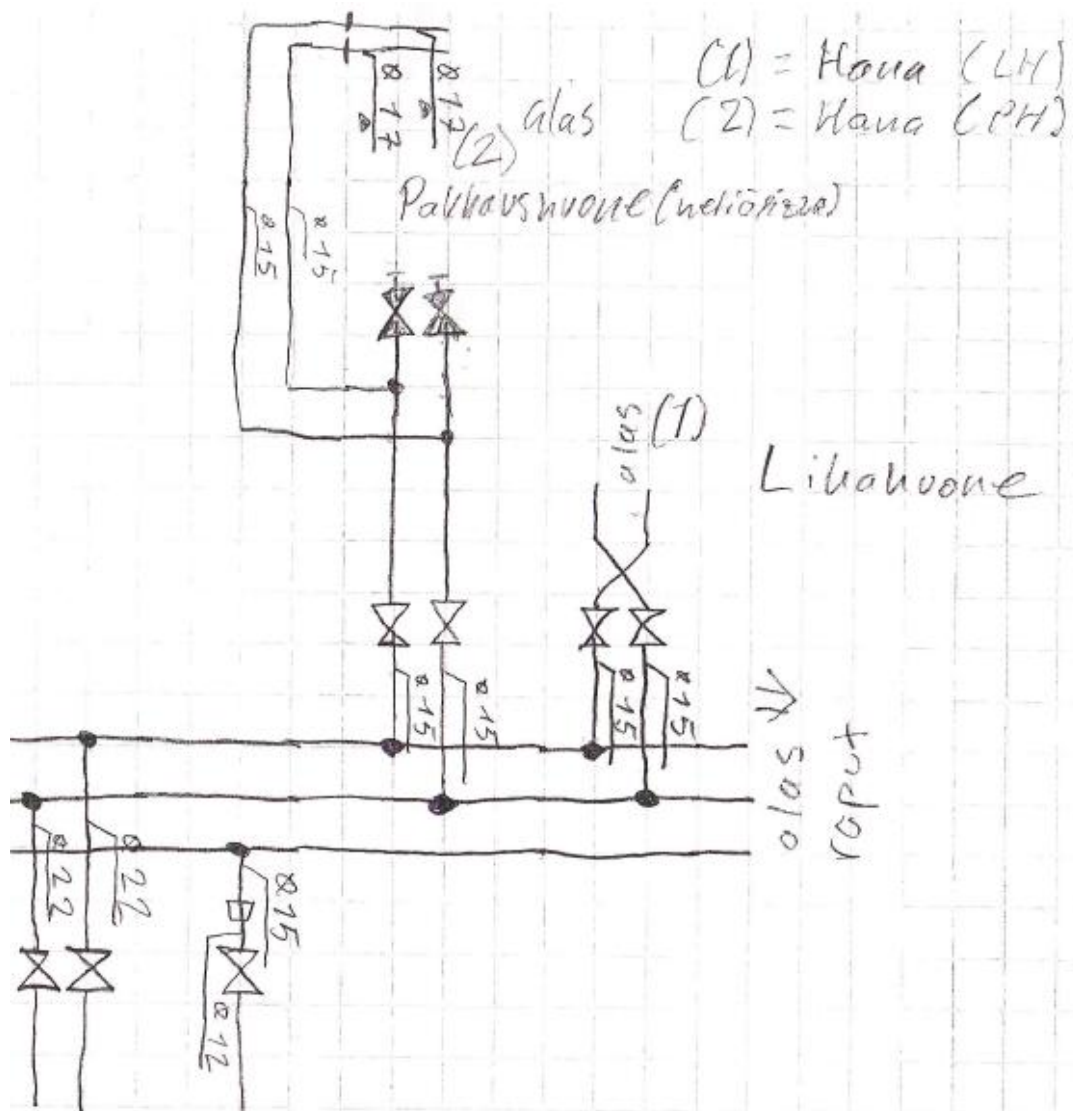 (1) = Hana (LH)
(2) = Hana (PH)
ø 17
ø 17
(2)
alas
Pakkaushuone
ø 15
ø 15
alas (1)
Lihahuone
ø 15
ø 15
ø 15
ø 15
alas
raput
ø 22
ø 22
ø 15
ø 12